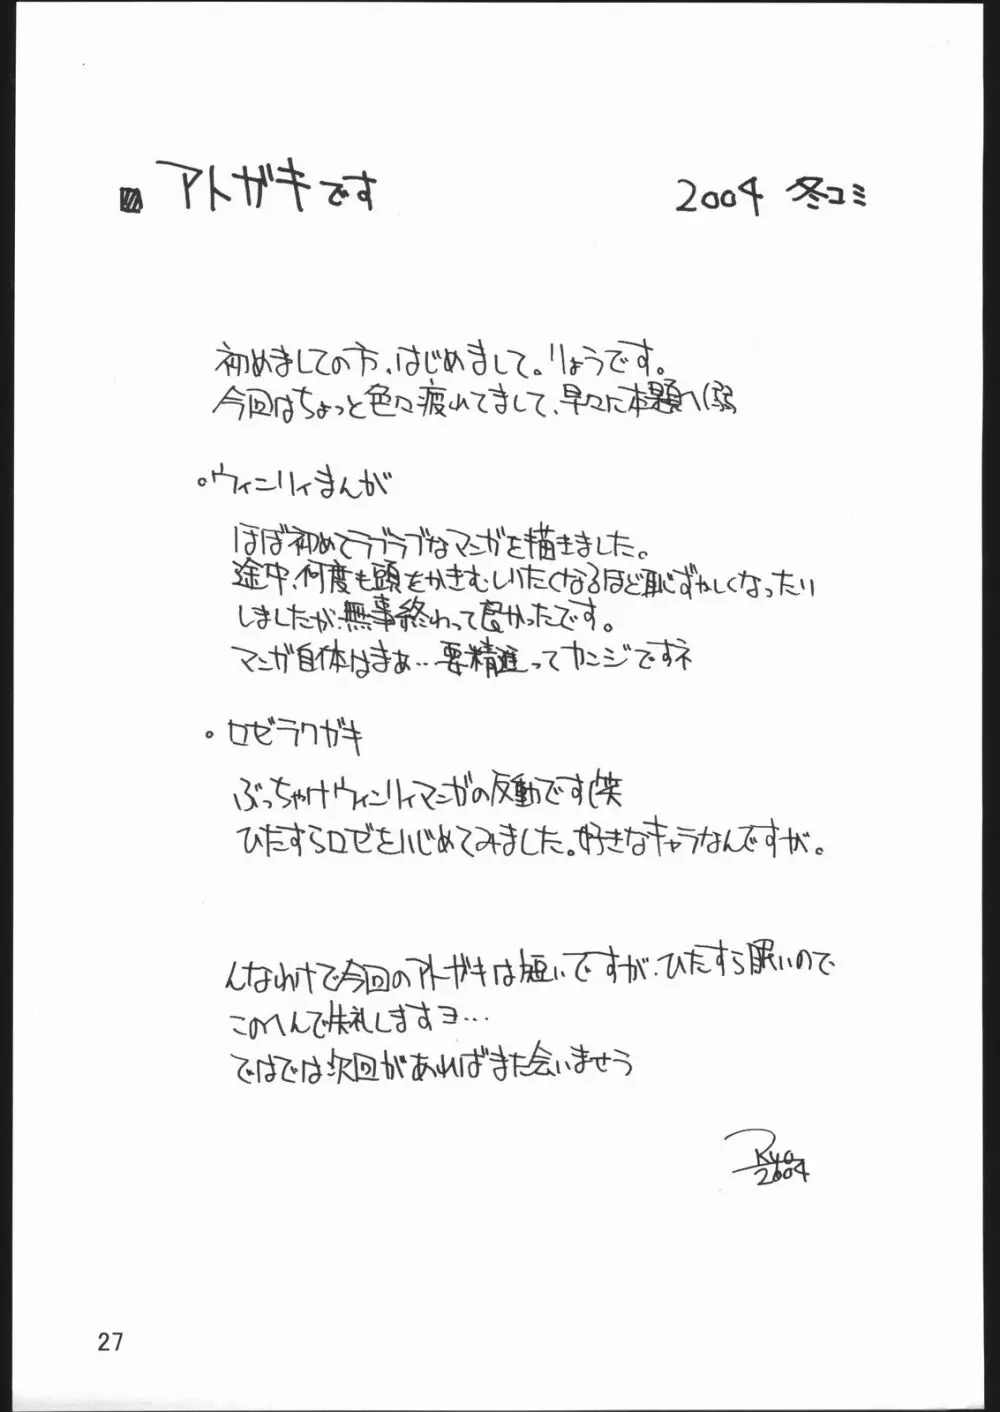 アトガキです
2004 冬コミ
初めましての方、はじめまして。りょうです。
今回はちょっと色々疲れてまして、早々に本題へ(弱
。ウィンリィまんが
ほぼ初めてラブラブなマンガを描きました。
途中、何度も頭をかきむしいたくなるほど恥ずかしくなったい
しましたが、無事終わって良かったです。
マンガ自体はまぁ…要精進ってカンジですネ
。ロゼラクガキ
ぶっちゃけウィンリィマンガの反動です(笑
ひたすらロゼをいじめてみました。好きなキャラなんですが。
んなわけで今回のアトガキは短いですが、ひたすら眠いので
このへんで失礼しますヨ…
ではでは次回があればまた会いませう
Ryo
2004
27